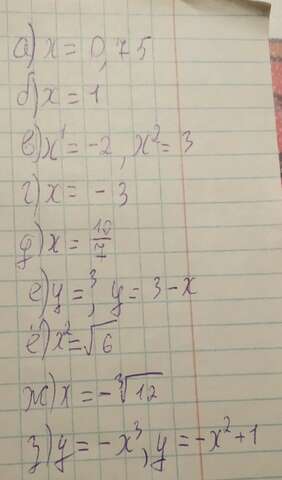 а) x = 0,75
б) x = 1
в) x¹ = -2, x² = 3
г) x = -3
д) x = 12/7
е) y = ³, y = 3 - x
ё) x² = √6
ж) x = -³√12
з) y = -x³, y = -x² + 1